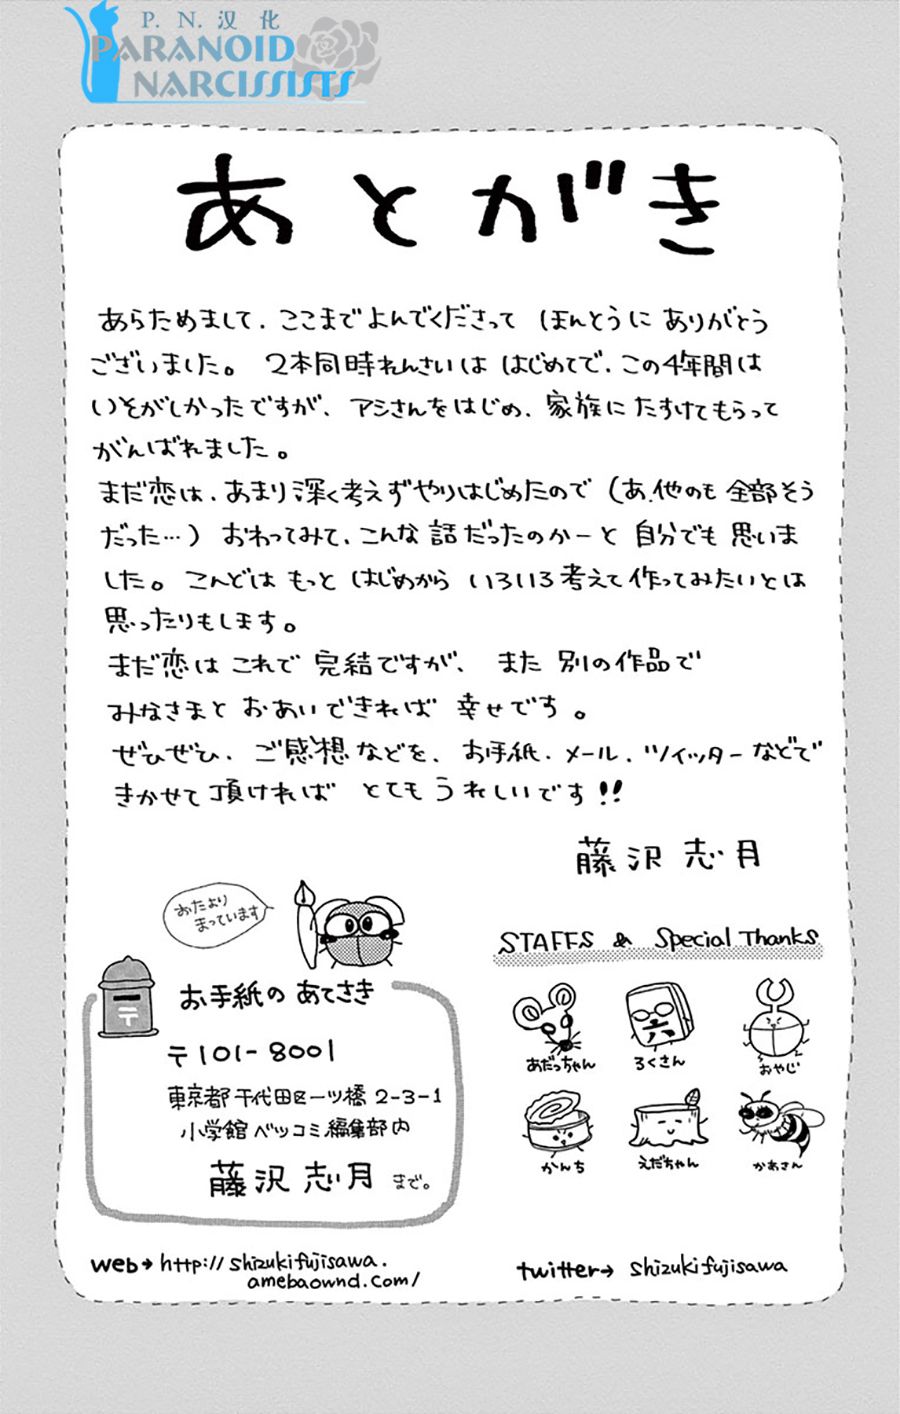 P. N. 汉 化
PARANOID
NARCISSISTS
あとがき
あらためまして、ここまでよんでくださって ほんとうに ありがとう
ございました。 2本同時れんさいは はじめてで、この4年間は
いそがしかったですが、アシさんをはじめ、家族にたすけてもらって
がんばれました。
まだ恋は、あまり深く考えずやりはじめたので (あ、他のも全部そう
だった…) おわってみて、こんな話だったのかーと 自分でも思いま
した。こんどは もっと はじめから いろいろ考えて作ってみたいとは
思ったりもします。
まだ恋は これで 完結ですが、 また 別の作品で
みなさまと おあいできれば 幸せです。
ぜひぜひ、ご感想などを、お手紙、メール、ツイッターなどで
きかせて頂ければ とても うれしいです!!
藤沢志月
おたより
まっています
お手紙の あてさき
〒101-8001
東京都千代田区一ツ橋 2-3-1
小学館 ベツコミ編集部内
藤沢志月 まで。
STAFFS & Special Thanks
六
あだっちゃん
ろくさん
おやじ
かんち
えだちゃん
かあさん
web→http://shizukifujisawa.
amebaownd.com/
twitter→ shizukifujisawa